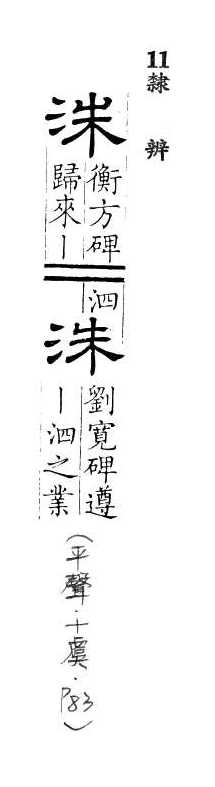 11隸辨
洙
衡方碑
歸來｜
泗
洙
劉寬碑遵
｜泗之業
(平聲·十虞·P83)